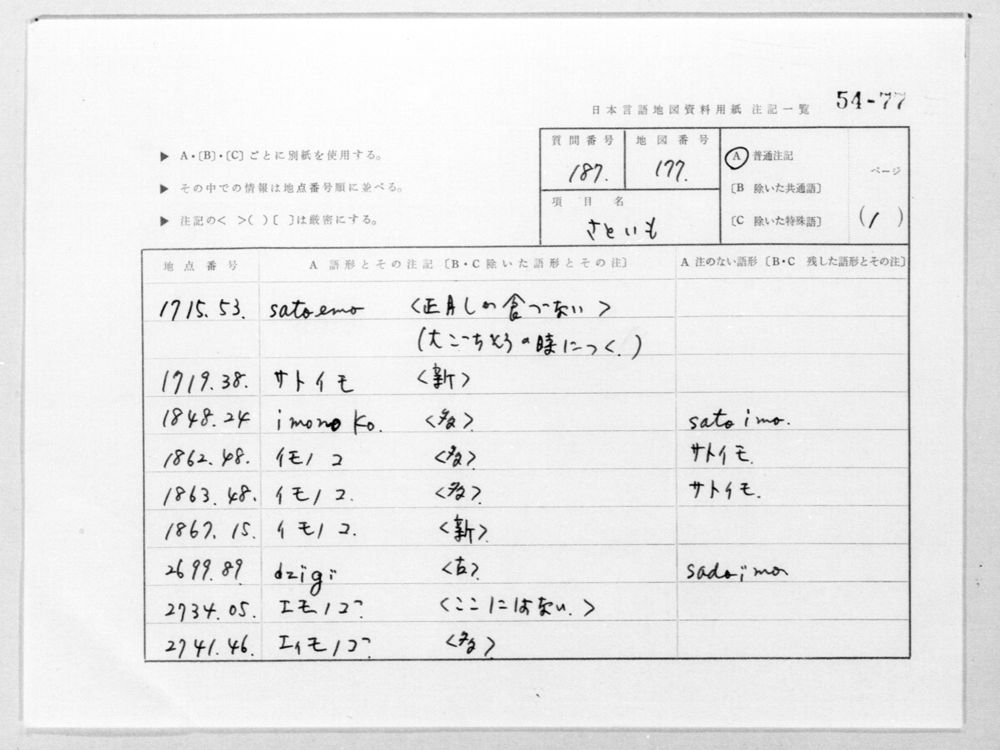 54-77
日本言語地図資料用紙 注記一覧
▶ A・〔B〕・〔C〕ごとに別紙を使用する。
▶ その中での情報は地点番号順に並べる。
▶ 注記の< >( )〔 〕は厳密にする。
質問番号 地図番号
187. 177.
項目名
さといも
A 普通注記
〔B 除いた共通語〕
〔C 除いた特殊語〕
ページ
(1)
地点番号 A 語形とその注記〔B・C 除いた語形とその注〕 A 注のない語形〔B・C 残した語形とその注〕
1715.53. satoemo <正月しか食べない>
(大ごちそうの時につく.)
1719.38. サトイモ <新>
1848.24 imonoko. <多> satoimo.
1862.48. イモノコ <多> サトイモ.
1863.48. イモノコ. <多> サトイモ.
1867.15. イモノコ. <新>
2699.89 dzigi <古> sadoimo
2734.05. エモノゴ <ここにはない.>
2741.46. エイモノゴ <多>